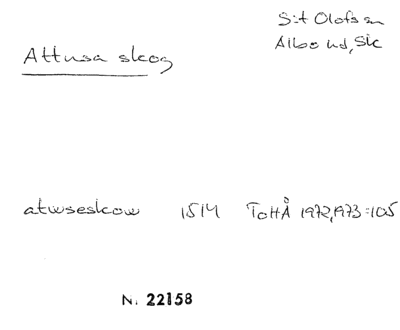 S:t Olofs sn
Albo hd, Sk
Attusa skog
atwseskow 1514 ToHÅ 1972,1973:105
N. 22158